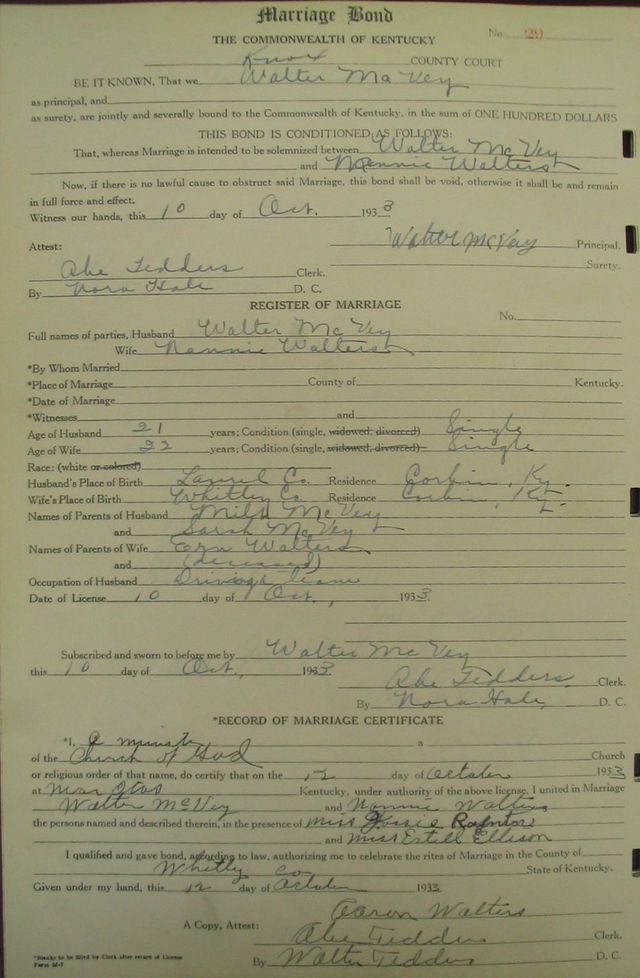 Marriage Bond
No. 29
THE COMMONWEALTH OF KENTUCKY
Knox COUNTY COURT
BE IT KNOWN, That we Walter McVey
as principal, and
as surety, are jointly and severally bound to the Commonwealth of Kentucky, in the sum of ONE HUNDRED DOLLARS
THIS BOND IS CONDITIONED AS FOLLOWS:
That, whereas Marriage is intended to be solemnized between Walter McVey
and Nannie Walters
Now, if there is no lawful cause to obstruct said Marriage, this bond shall be void, otherwise it shall be and remain
in full force and effect.
Witness our hands, this 10 day of Oct. 1933
Walter McVey Principal.
Attest:
Surety.
Abe Tedders Clerk.
By Nora Hale D. C.
REGISTER OF MARRIAGE
No.
Full names of parties, Husband Walter McVey
Wife Nannie Walters
*By Whom Married
*Place of Marriage County of Kentucky.
*Date of Marriage
*Witnesses and
Age of Husband 21 years; Condition (single, widowed, divorced) Single
Age of Wife 22 years; Condition (single, widowed, divorced) Single
Race: (white or colored)
Husband's Place of Birth Laurel Co. Residence Corbin, Ky.
Wife's Place of Birth Whitley Co. Residence Corbin, Ky.
Names of Parents of Husband Milt McVey
and Sarah McVey
Names of Parents of Wife Walters
and (deceased)
Occupation of Husband
Date of License 10 day of Oct., 1933
Subscribed and sworn to before me by Walter McVey
this 10 day of Oct., 1933.
Abe Tedders Clerk.
By Nora Hale, D. C.
*RECORD OF MARRIAGE CERTIFICATE
*I, a minister a
of the Church of God Church
or religious order of that name, do certify that on the 12 day of October 1933
at near Kentucky, under authority of the above license, I united in Marriage
Walter McVey and Nannie Walters
the persons named and described therein, in the presence of Miss
and Miss Estell Ellison
I qualified and gave bond, according to law, authorizing me to celebrate the rites of Marriage in the County of
Whitly co State of Kentucky.
Given under my hand, this 12 day of October 1933.
Aaron Walters
A Copy, Attest: Abe Tedders Clerk.
By Walter Tedders D. C.
*Blanks to be filled by Clerk after return of License
Form M-7